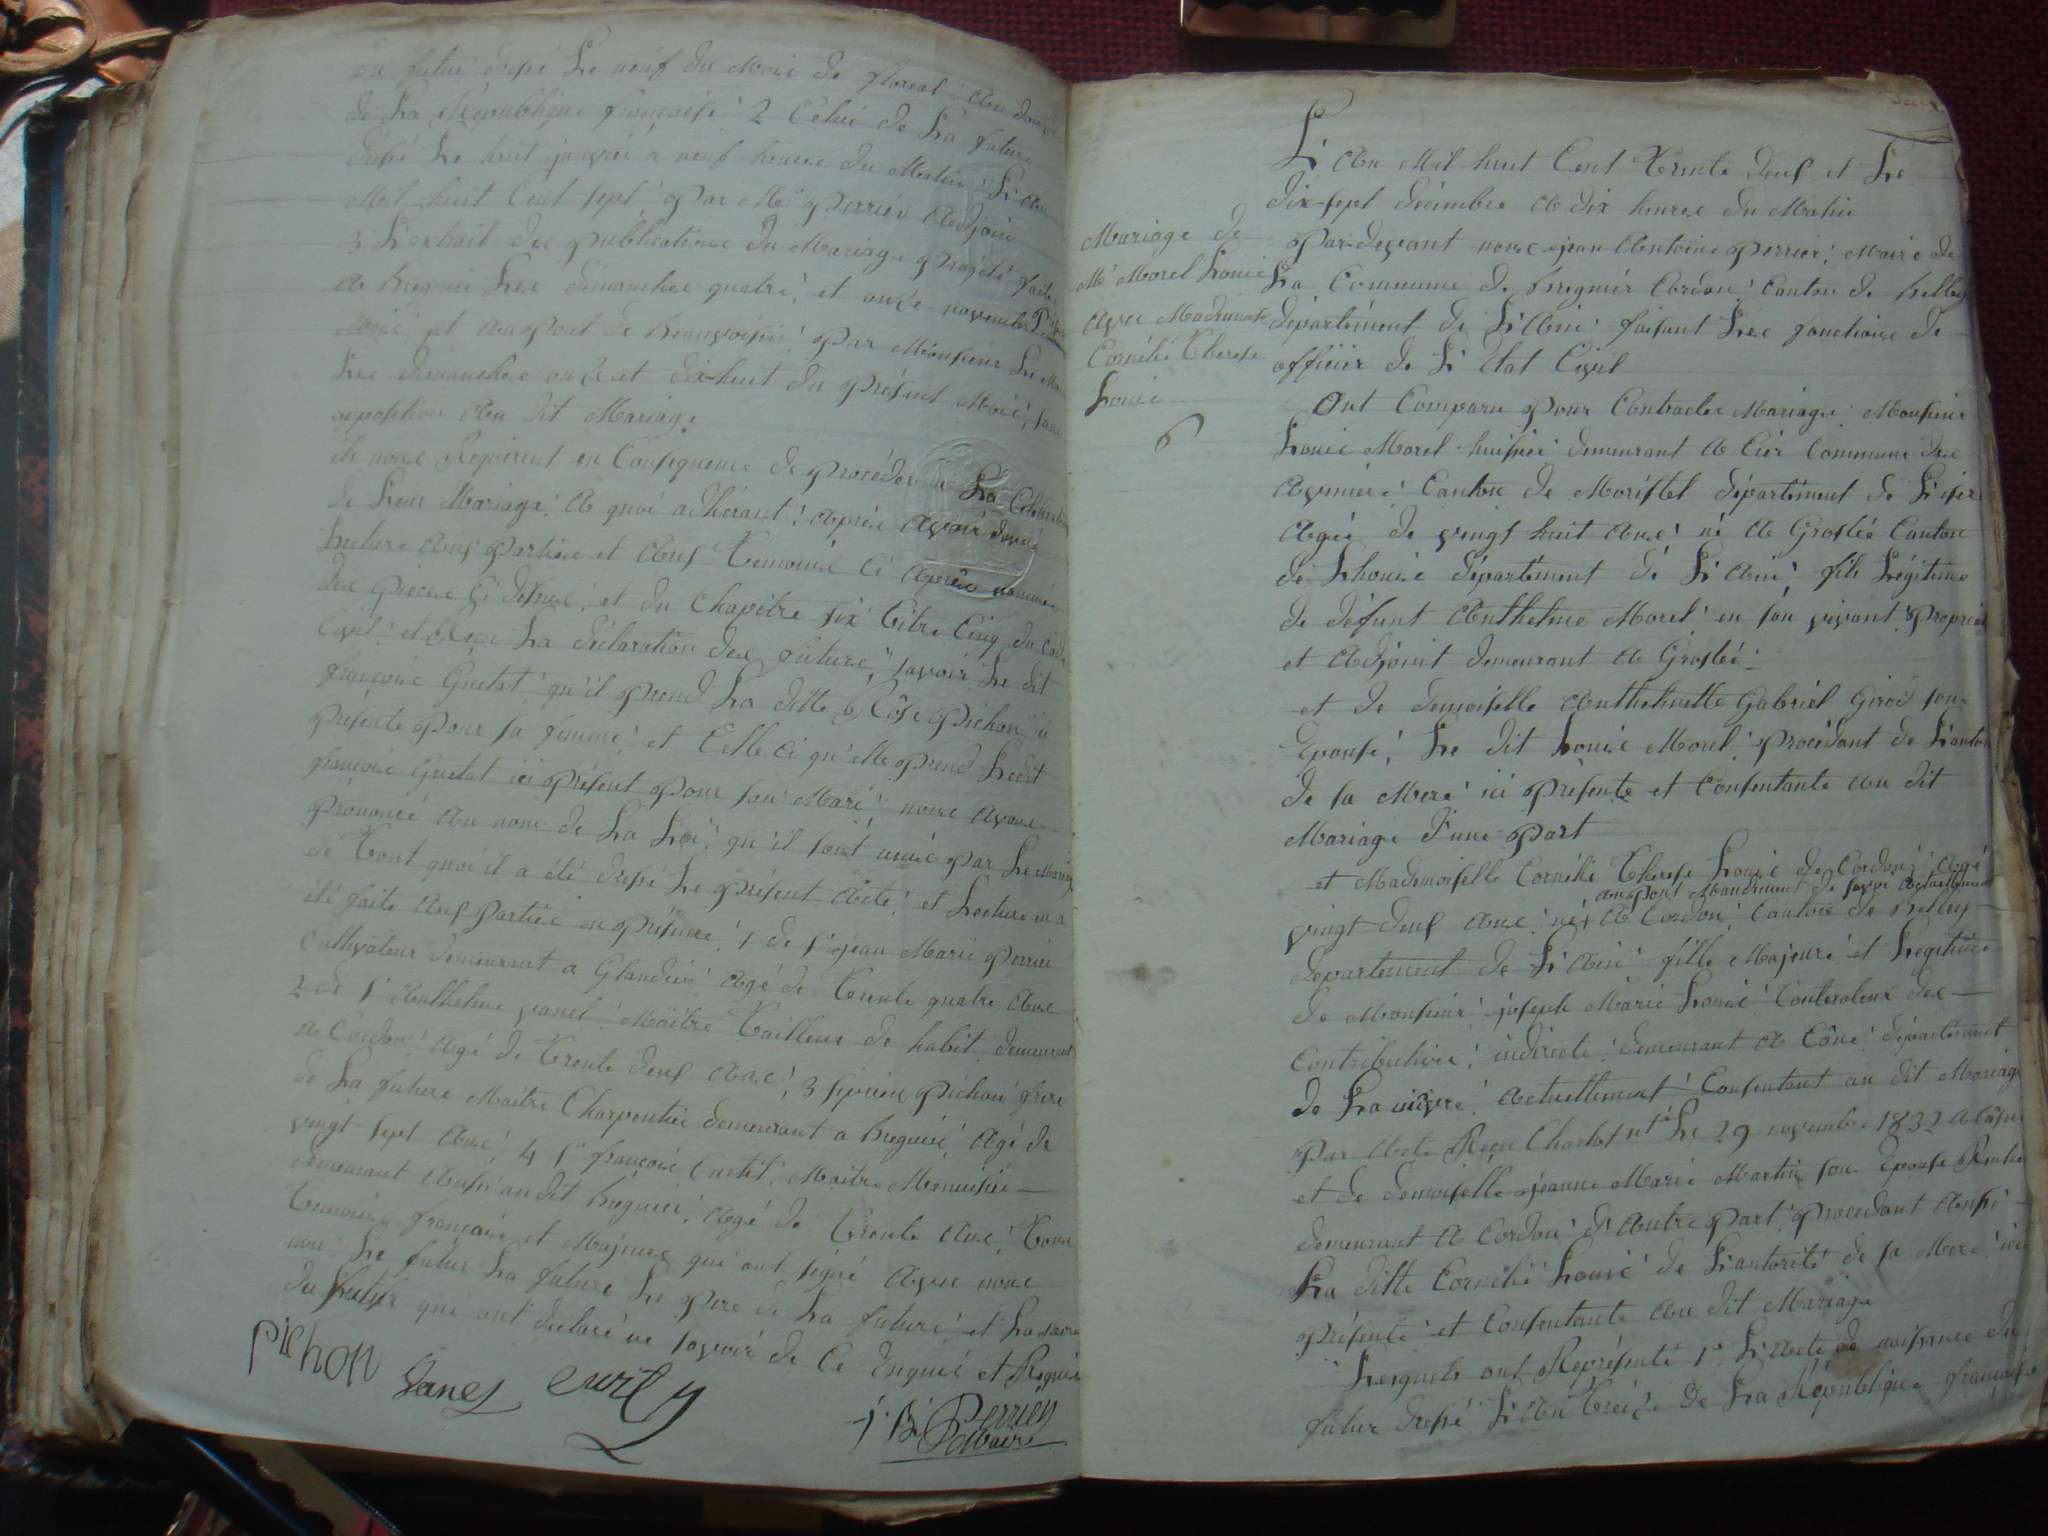 du futur dressé Le neuf du Mois de floreal An douze
de La République française 2 Celui de La future
dressé Le huit janvier a neuf heures du Matin L'An
Mil huit Cent sept par Mr perrier Adjoint
3 L'extrait des publications du Mariage projeté faites
a bregnier Les dimanches quatre et onze novembre
Mois et Au pont de beauvoisin par Monsieur Le Maire
Les dimanches onze et dix-huit du présent Mois, sans
opposition Au dit Mariage
ils nous Requierent en Consequence de proceder a La Celebration
de Leur Mariage, A quoi adhérant, après Avoir donné
Lecture Aux parties et Aux Temoins Ci Après nommés
des pieces Ci dessus, et du Chapitre six titre Cinq du Code
Civil et Reçu La déclaration des futurs, savoir Le dit
françois Guetat qu'il prend La ditte Rôse pichon ici
présente pour sa femme, et Celle Ci qu'elle prend Ledit
françois Guetat ici présent pour son Mari, nous Avons
prononcé Au nom de La Loi, qu'il sont unis par Le Mariage
de Tout quoi il a été dressé Le présent Acte, et Lecture en a
été faite Aux parties en présence, 1 de sr jean Marie perrier
Cultivateur demeurant a Glandieu Agé de Trente quatre Ans
2 de sr Anthelme janel Maître Tailleur de habit demeurant
a Cordon Agé de Trente deux Ans, 3 pichon frere
de La future Maitre Charpentier demeurant a bregnier Agé de
vingt sept Ans, 4 sr françois Curtet, Maitre Menuisier
demeurant Aussi au dit bregnier, Agé de Trente Ans, Tous
Temoins français et Majeurs qui ont signé Avec nous
non Le futur La future Le pere de La future, et La mere
du futur qui ont déclaré ne savoir de Ce Enquis et Requis
pichon Janel
j. A. Perrier
Maire
L'An Mil huit Cent Trente deux et Le
dix-sept décembre A dix heures du Matin
par-devant nous jean Antoine perrier, Maire de
La Commune de bregnier Cordon Canton de belley
département de L'Ain faisant Les fonctions de
officier de L'Etat Civil
Mariage de
Mr Morel Louis
Avec Mademoiselle
Cornélie Therese
Louis
6
Ont Comparu pour Contracter Mariage Monsieur
Louis Morel huissier demeurant A Cier Commune des
Avenières Canton de Morestel département de L'isere
Agé de vingt huit Ans, né A Groslée Canton
de Lhouis département de L'Ain, fils Légitime
de défunt Anthelme Morel en son vivant propriet
et Adjoint demeurant A Groslée
et de demoiselle Anthelmette Gabriel Girod son
Epouse, Le dit Louis Morel procédant de L'autorité
de sa Mere ici présente et Consentante Au dit
Mariage d'une part
et Mademoiselle Cornélie Therese Louis de Cordon, Agé
au pont Mandement de Actuellement
vingt deux Ans, né A Cordon Canton de belley
departement de L'Ain fille Majeure et Legitime
de Monsieur joseph Marie Louis Controleur des
Contributions indirecte demeurant A Cône département
de La nièvre Actuellement Consentant au dit Mariage
par Acte Reçu Charlot nre Le 29 novembre 1832 A Cosne
et de demoiselle jeanne Marie Martin son Epouse Rentiere
demeurant A Cordon d'Autre part procedant Aussi
La ditte Cornélie Louis de L'autorité de sa Mere ici
présente et Consentante Au dit Mariage
Lesquels ont Représenté 1° L'Acte de naissance du
futur dressé L'An Treize de La République française